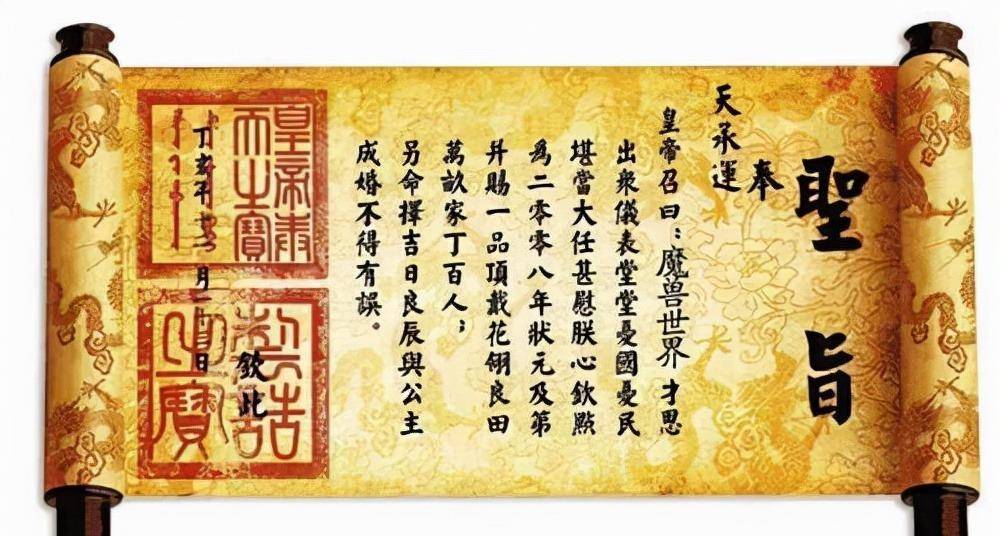 聖旨
奉
天承運
皇帝召曰：魔兽世界才思
出衆儀表堂堂憂國憂民
堪當大任甚慰朕心欽點
爲二零零八年狀元及第
并賜一品頂戴花翎良田
萬畝家丁百人；
另命擇吉日良辰與公主
成婚不得有誤。
欽此
丁亥年
月
日
皇帝奉
天之寶
制誥
之寶